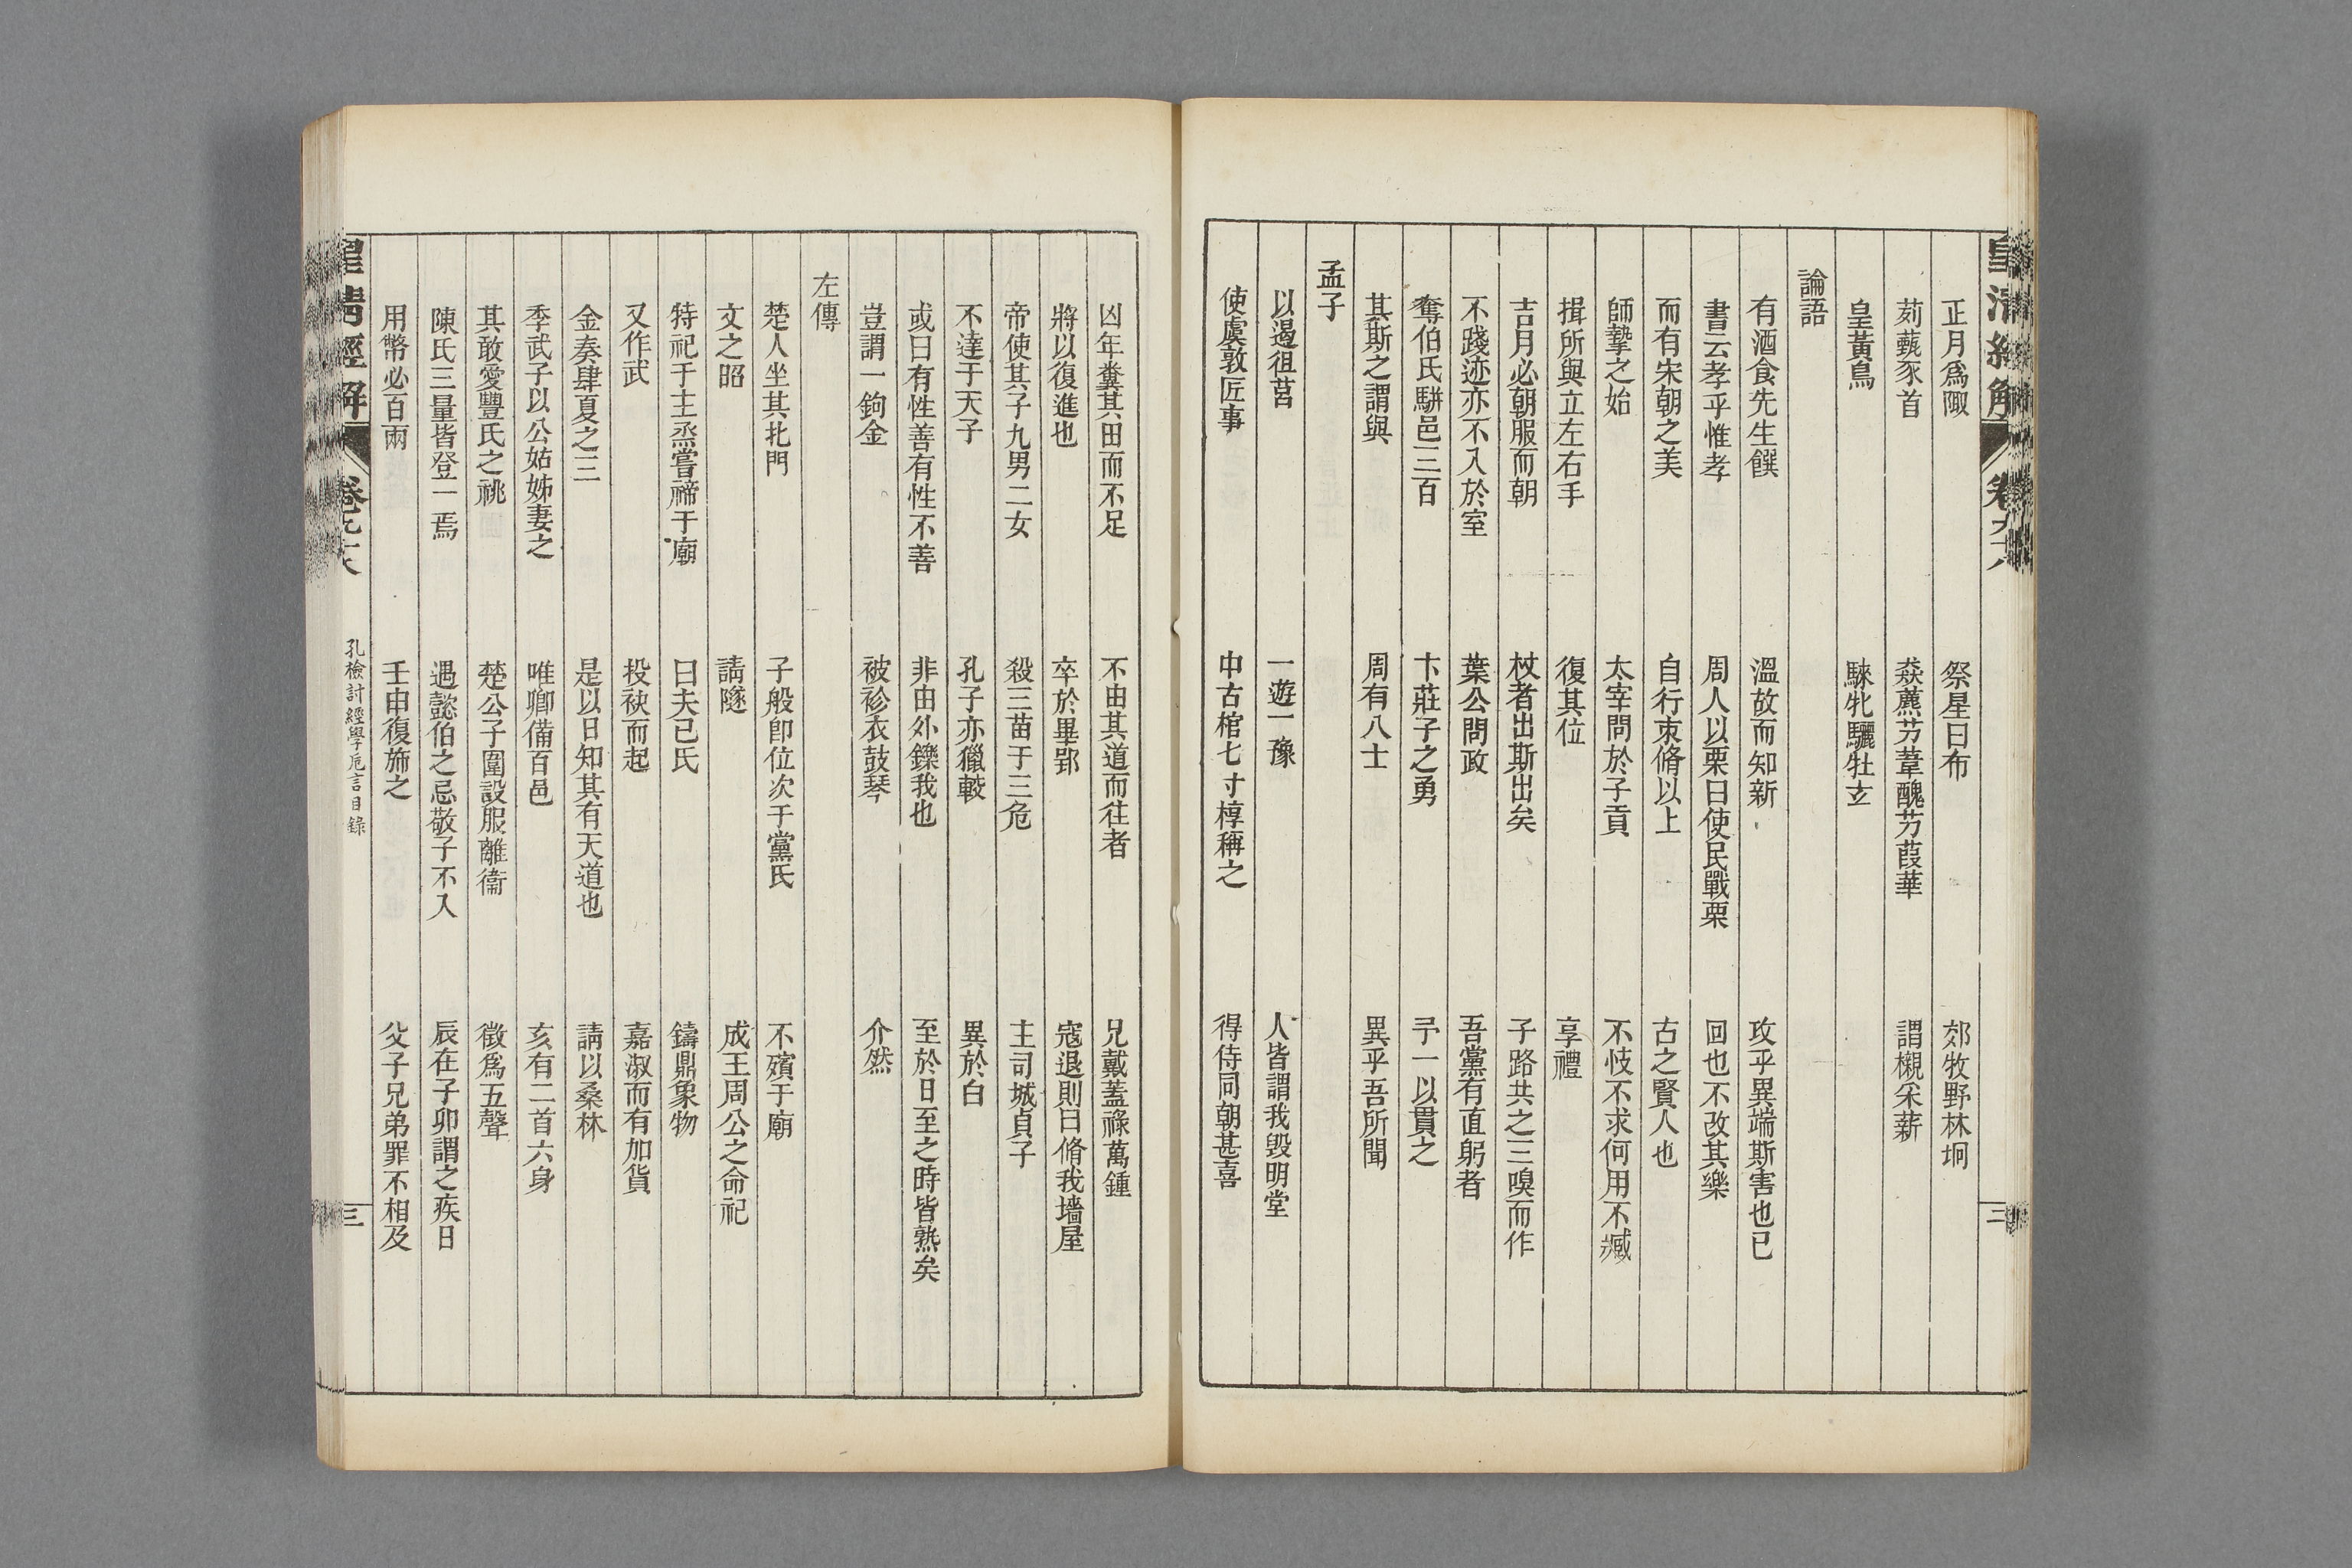 正月爲陬　祭星曰布　郊牧野林坰
茢薽豕首　猋藨芀葦醜芀葭華　謂櫬采薪
皇黃鳥　騋牝驪牡玄
論語
有酒食先生饌　溫故而知新　攻乎異端斯害也已
書云孝乎惟孝　周人以栗曰使民戰栗　回也不改其樂
而有宋朝之美　自行束脩以上　古之賢人也
師摯之始　太宰問於子貢　不忮不求何用不臧
揖所與立左右手　復其位　享禮
吉月必朝服而朝　杖者出斯出矣　子路共之三嗅而作
不踐迹亦不入於室　葉公問政　吾黨有直躬者
奪伯氏駢邑三百　卞莊子之勇　予一以貫之
其斯之謂與　周有八士　異乎吾所聞
孟子
以遏徂莒　一遊一豫　人皆謂我毀明堂
使虞敦匠事　中古棺七寸椁稱之　得侍同朝甚喜
皇清經解　卷　三
凶年糞其田而不足　不由其道而往者　兄戴蓋祿萬鍾
將以復進也　卒於畢郢　寇退則曰脩我墻屋
帝使其子九男二女　殺三苗于三危　主司城貞子
不達于天子　孔子亦獵較　異於白
或曰有性善有性不善　非由外鑠我也　至於日至之時皆熟矣
豈謂一鉤金　被袗衣鼓琴　介然
左傳
楚人坐其北門　子般卽位次于黨氏　不殯于廟
文之昭　請隧　成王周公之命祀
特祀于主烝嘗禘于廟　曰夫己氏　鑄鼎象物
又作武　投袂而起　嘉淑而有加貨
金奏肆夏之三　是以日知其有天道也　請以桑林
季武子以公姑姊妻之　唯卿備百邑　亥有二首六身
其敢愛豐氏之祧　楚公子圍設服離衞　徵爲五聲
陳氏三量皆登一焉　遇懿伯之忌敬子不入　辰在子卯謂之疾日
用幣必百兩　壬申復旆之　父子兄弟罪不相及
皇清經解　卷　孔檢討經學卮言目錄　三